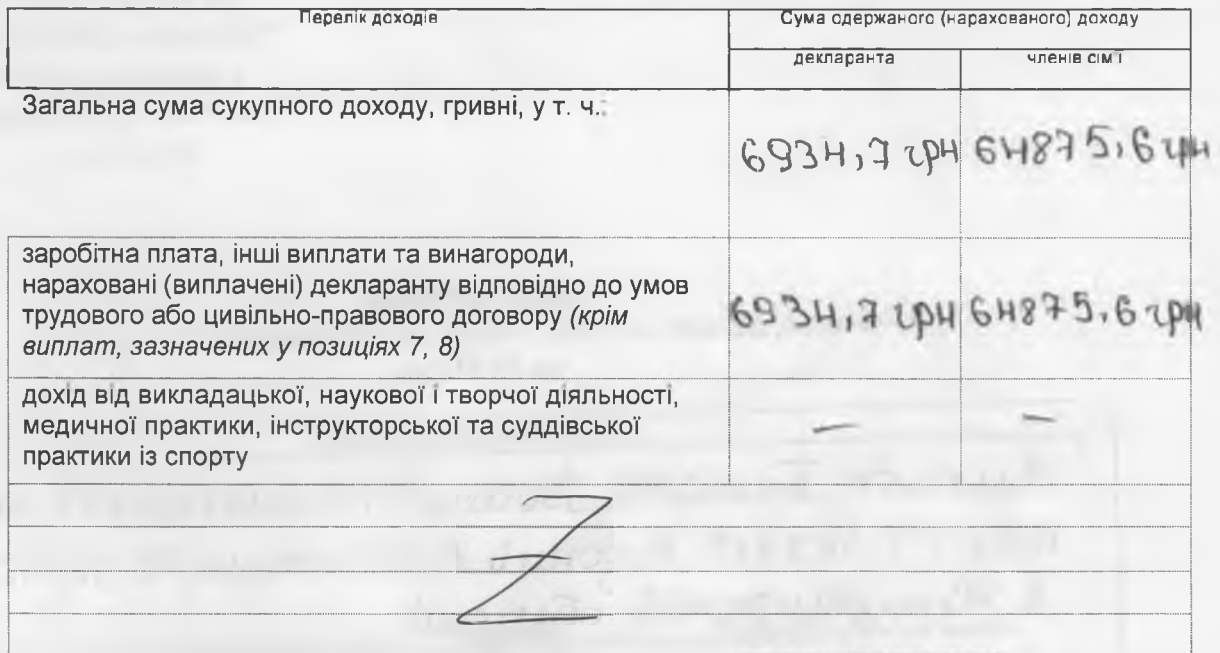 Перелік доходів
Сума одержаного (нарахованого) доходу
декларанта
членів сім'ї
Загальна сума сукупного доходу, гривні, у т. ч.:
6934,7 грн 64875,6 грн
заробітна плата, інші виплати та винагороди,
нараховані (виплачені) декларанту відповідно до умов
трудового або цивільно-правового договору (крім
виплат, зазначених у позиціях 7, 8)
6934,7 грн 64875,6 грн
дохід від викладацької, наукової і творчої діяльності,
медичної практики, інструкторської та суддівської
практики із спорту
— —